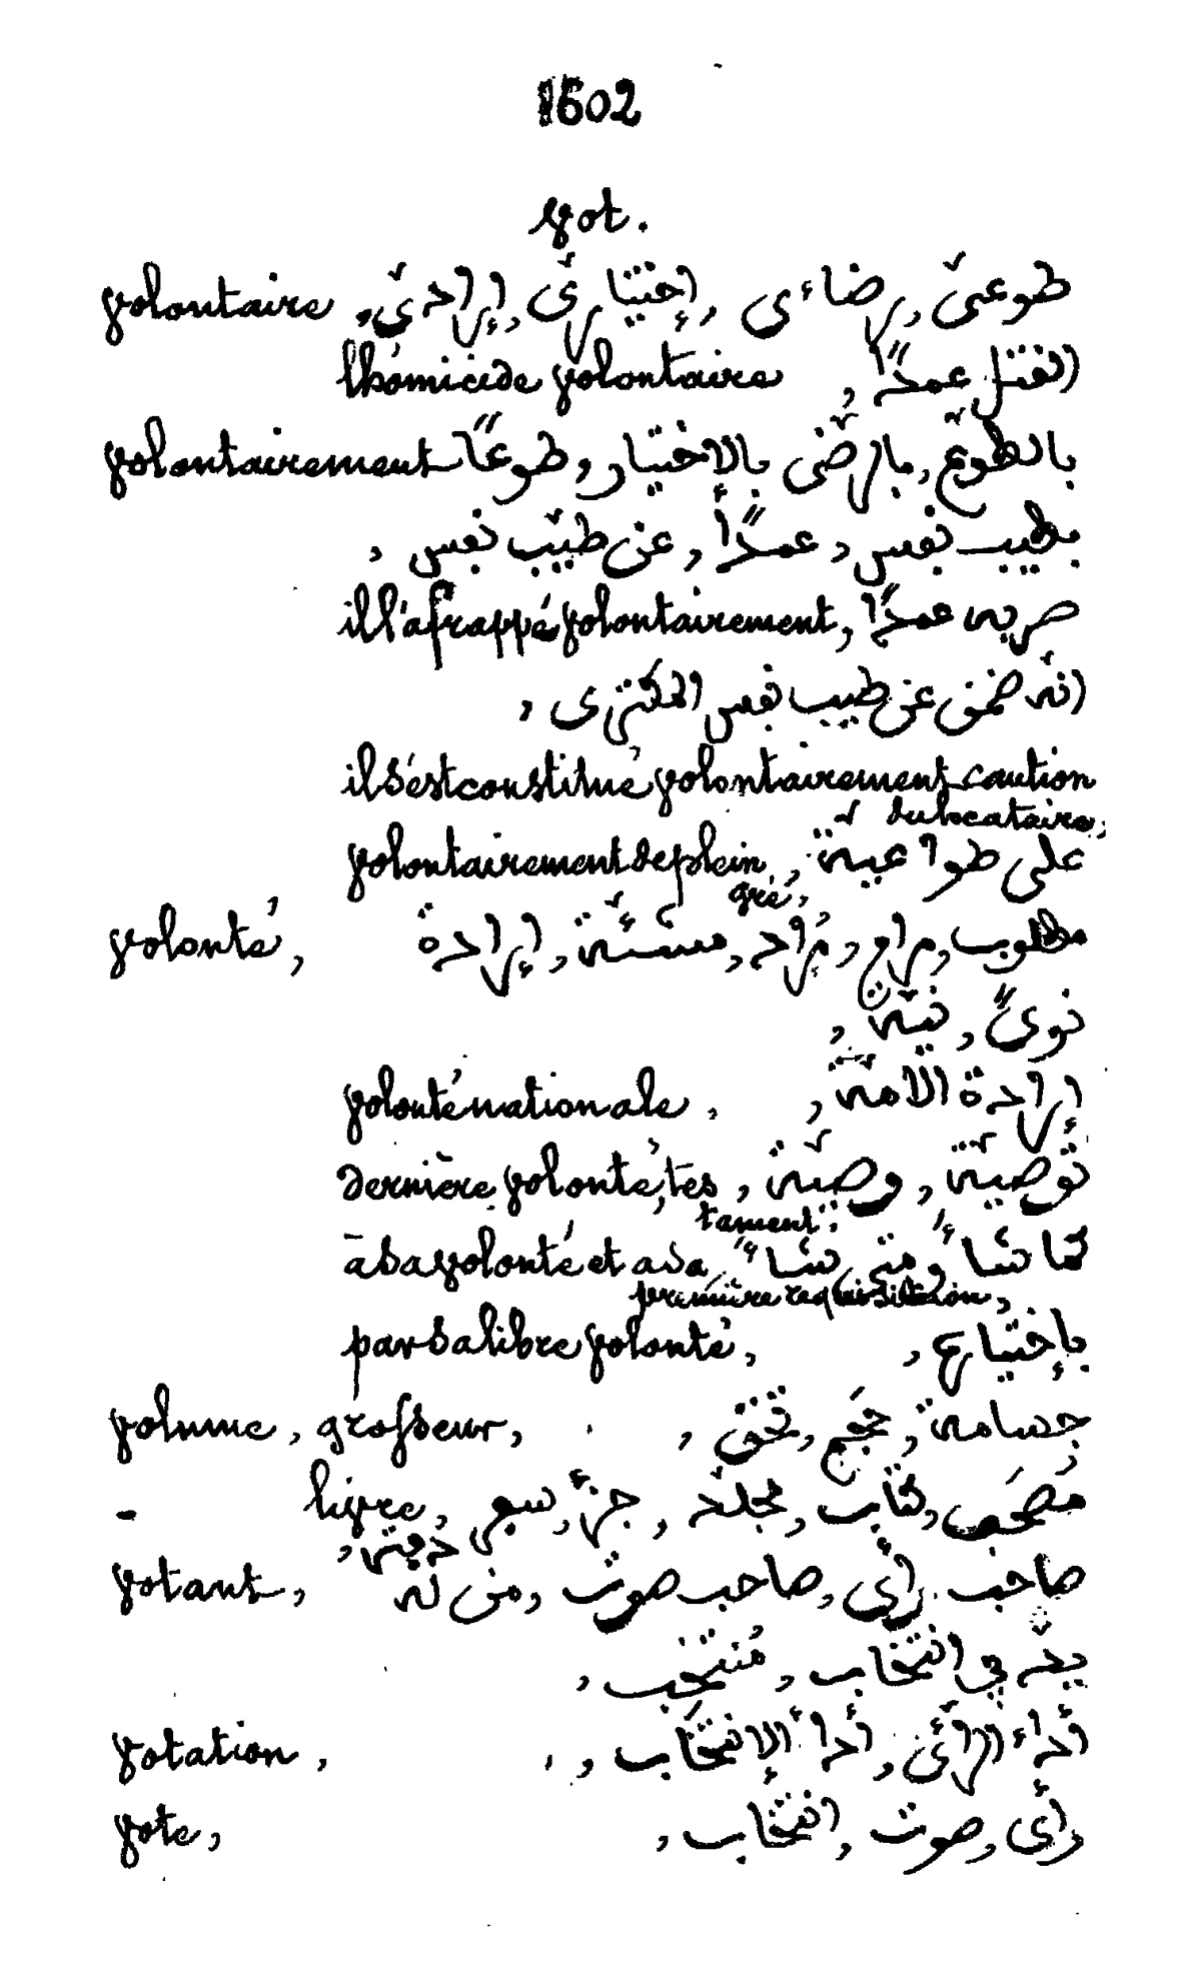 1602
vot.
volontaire, طوعىّ, رضاءى, إختيارىّ, إرادىّ,
l'homicide volontaire, القتل عمدًا,
volontairement بالطّوع, بالرّضى بالإختيار, طوعًا
بطيب نفس, عمدًا, عن طيّب نفس,
il l'a frappé volontairement, ضربه عمدًا
انّه ضمن عن طيب نفس المكترى,
il s'est constitué volontairement caution
du locataire,
volontairement de plein, على طواعيّة
gré,
volonté, مطلوب, مرام, مُراد, مشئّة, إرادة
نوىً, نيّة,
volonté nationale, إرادة الأمّة,
dernière volonté, tes توّصيّة, وصيّة,
tament,
à sa volonté et a sa كما شاءَ ومتى شاءَ
première requisition,
par sa libre volonté, بإختياره,
volume, grosseur, جسامة, حجم, تخن,
- livre, مصحَف, كتاب, مجلّد, جزأ, سفر,
دفتر,
votant, صاحب رأى, صاحب صوت, من له
يدّ في انتخاب, مُنتخب,
votation, أداء الرّأى, أداء الإنتخاب,
vote, رأى, صوت, انتخاب,